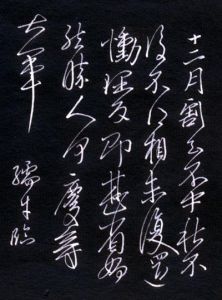 十二月割至不中秋不
復不得相未復還
慟理為即甚省如
然勝人何慶等
大軍
孺牛臨